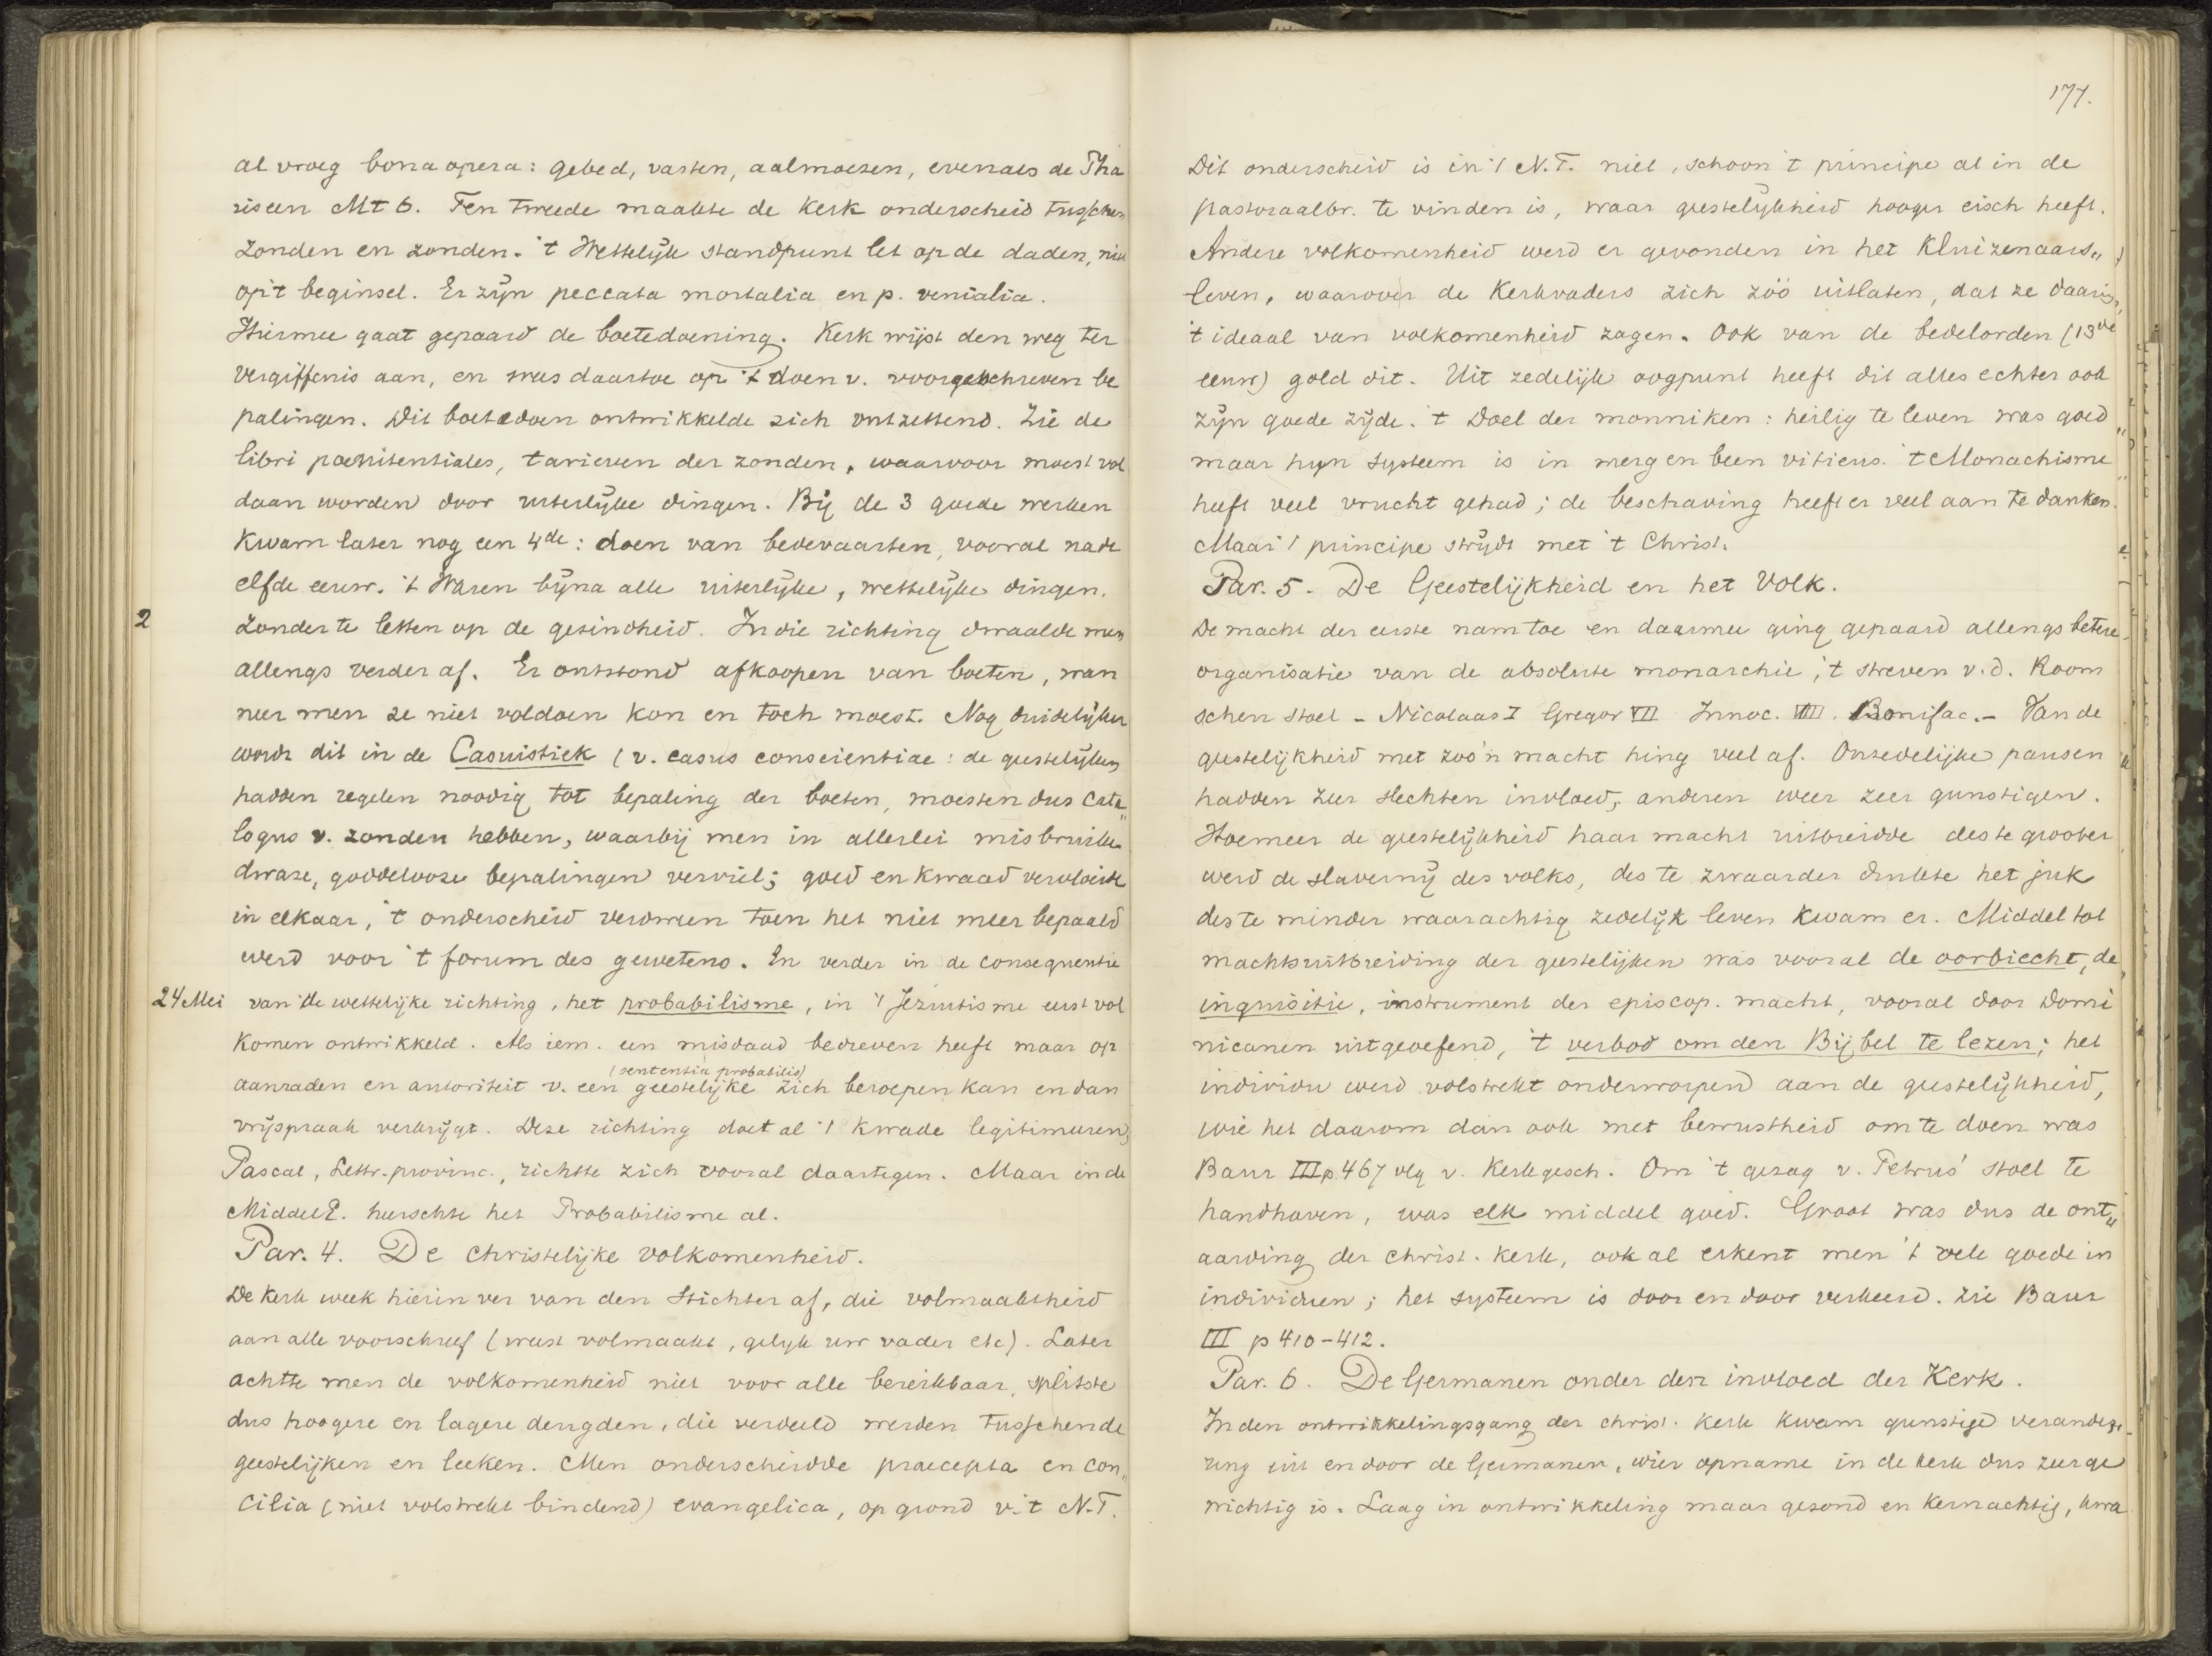 al vroeg bona opera: gebed, vasten, aalmoezen, evenals de Pha
riseen Mt 6. Ten tweede maakte de Kerk onderscheid tusschen
zonden en zonden. 't Wettelijk standpunt let op de daden, niet
op 't beginsel. Er zijn peccata mortalia en p. venialia.
Hiermee gaat gepaard de boetedoening. Kerk wijst den weg ter
vergiffenis aan, en was daartoe op 't doen v. voorgeschreven be
palingen. Dit boetedoen ontwikkelde zich ontzettend. Zie de
libri poenitentiales, tarieven der zonden, waarvoor moest vol
daan worden door uiterlijke dingen. Bij de 3 goede werken
Kwam later nog een 4de: doen van bedevaarten, vooral na de
elfde eeuw. 't Waren bijna alle uiterlijke, wettelijke dingen.
2 Zonder te letten op de gezindheid. In die richting dwaalde men
allengs verder af. Er ontstond afkoopen van boeten, wan
neer men ze niet voldoen kon en toch moest. Nog duidelijker
wordt dit in de Casuistiek (v. casus conscientiae: de geestelijken
hadden regelen noodig tot bepaling der boeten, moesten dus Cata„
logus v. zonden hebben, waarbij men in allerlei misbruiken
dwaze, goddelooze bepalingen verviel; goed en kwaad vervloeide
in elkaar, 't onderscheid verdween toen het niet meer bepaald
werd voor 't forum des gewetens. En verder in de consequentie
24 Mei van de wettelijke richting, het probabilisme, in 't Jezuitisme eerst vol
komen ontwikkeld. Als iem. een misdaad bedreven heeft maar op
(sententia probabilis)
aanraden en autoriteit v. een geestelijke zich beroepen kan en dan
vrijspraak verkrijgt. Deze richting doet al 't kwade legitimeeren,
Pascal, Lettr. provinc., richtte zich vooral daartegen. Maar in de
MiddelE. heerschte het Probabilisme al.
Par. 4. De Christelijke volkomenheid.
De Kerk week hierin ver van den Stichter af, die volmaaktheid
aan alle voorschreef (weest volmaakt, gelijk uw vader etc). Later
achtte men de volkomenheid niet voor alle bereikbaar, splitste
dus hoogere en lagere deugden, die verdeeld werden tusschen de
geestelijken en leeken. Men onderscheidde praecepta en con„
cilia (niet volstrekt bindend) evangelica, op grond v. 't N.T.
177.
Dit onderscheid is in 't N.T. niet, schoon 't principe al in de
pastoraalbr. te vinden is, waar geestelijkheid hooger eisch heeft.
Andere volkomenheid werd er gevonden in het Kluizenaars„
leven, waarover de Kerkvaders zich zóó uitlaten, dat ze daarin
't ideaal van volkomenheid zagen. Ook van de bedelorden (13de
eeuw) gold dit. Uit zedelijk oogpunt heeft dit alles echter ook
zijn goede zijde. 't Doel der monniken: heilig te leven was goed
maar hun systeem is in merg en been vitieus. 't Monachisme
heeft veel vrucht gehad; de beschaving heeft er veel aan te danken.
Maar 't principe strijdt met 't Christ.
Par. 5. De Geestelijkheid en het Volk.
De macht der eerste nam toe en daarmee ging gepaard allengs betere
organisatie van de absolute monarchie, 't streven v.d. Room
schen stoel - Nicolaas I Gregor VII Innoc. VIII. Bonifac. - Van de
geestelijkheid met zoo'n macht hing veel af. Onzedelijke pausen
hadden zeer slechten invloed, anderen weer zeer gunstigen.
Hoe meer de geestelijkheid haar macht uitbreidde des te grooter
werd de slavernij des volks, des te zwaarder drukte het juk
des te minder waarachtig zedelijk leven kwam er. Middel tot
machtsuitbreiding der geestelijken was vooral de oorbiecht, de
inquisitie, instrument der episcop. macht, vooral door Domi
nicanen uitgeoefend, 't verbod om den Bijbel te lezen; het
individu werd volstrekt onderworpen aan de geestelijkheid,
wie het daarom dan ook met bewustheid om te doen was
Baur III p. 467 vlg v. Kerkgesch. Om 't gezag v. Petrus' stoel te
handhaven, was elk middel goed. Groot was dus de ont„
aarding der christ. kerk, ook al erkent men 't vele goede in
individuen; het systeem is door en door verkeerd. Zie Baur
III p 410-412.
Par. 6. De Germanen onder den invloed der Kerk.
In den ontwikkelingsgang der christ. Kerk kwam gunstige verande
ring uit en door de Germanen, wier opname in de kerk dus zeer ge
wichtig is. Laag in ontwikkeling maar gezond en kernachtig, kwa